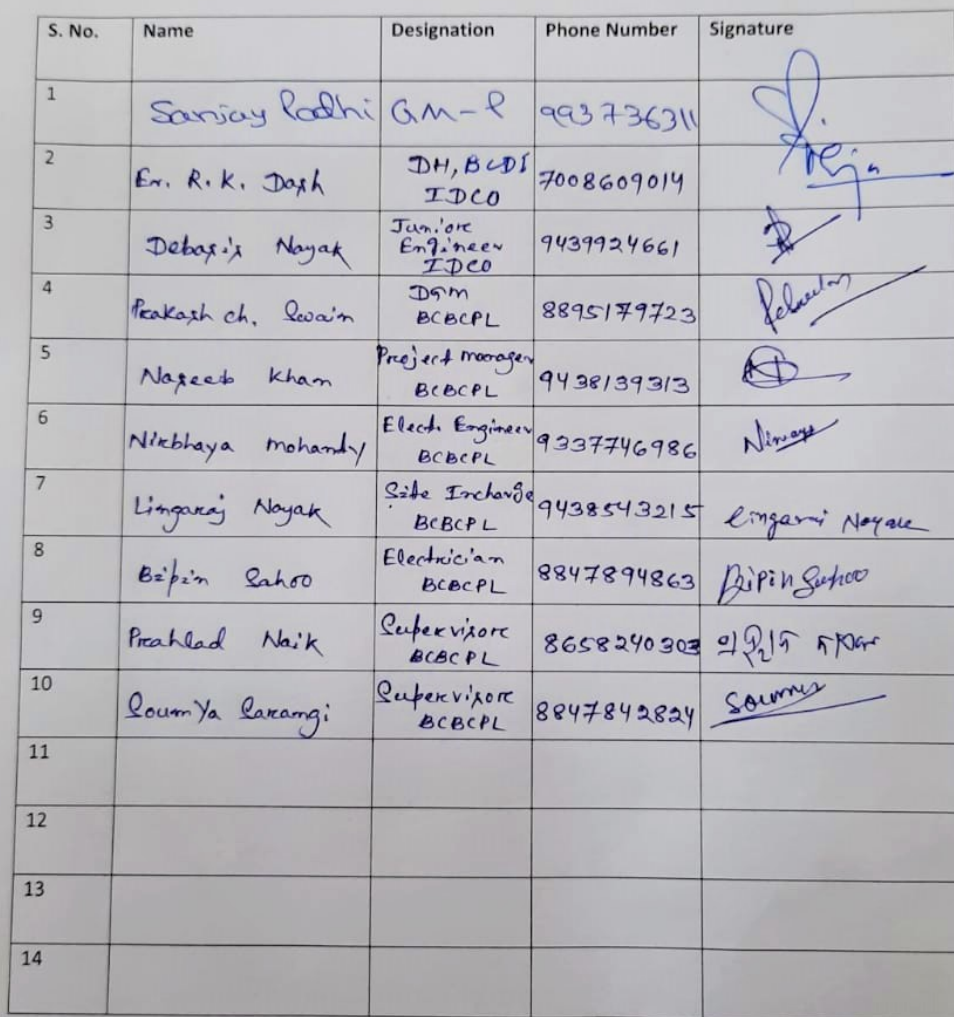 S. No. Name Designation Phone Number Signature
1 Sanjay Padhi GM-P 9937 36311
2 Er. R. K. Dash DH, BCDI IDCO 7008609014
3 Debasis Nayak Juniore Engineer IDCO 9439924661
4 Prakash ch. Swain DGM BCBCPL 8895179723
5 Naseeb Khan Project manager BCBCPL 9438139313
6 Nirbhaya mohanty Elect. Engineer BCBCPL 9337746986
7 Lingaraj Nayak Site Incharge BCBCPL 9438543215 Lingaraj Nayak
8 Bipin Sahoo Electrician BCBCPL 8847894863 Bipin Sahoo
9 Prahlad Naik Supervisore BCBCPL 8658240303
10 SoumYa Sarangi Supervisore BCBCPL 8847842824 Soumya
11
12
13
14